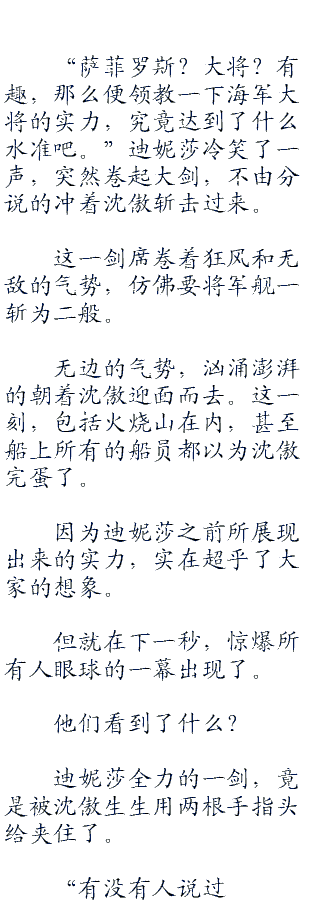 “萨菲罗斯？大将？有
趣，那么便领教一下海军大
将的实力，究竟达到了什么
水准吧。”迪妮莎冷笑了一
声，突然卷起大剑，不由分
说的冲着沈傲斩击过来。
这一剑席卷着狂风和无
敌的气势，仿佛要将军舰一
斩为二般。
无边的气势，汹涌澎湃
的朝着沈傲迎面而去。这一
刻，包括火烧山在内，甚至
船上所有的船员都以为沈傲
完蛋了。
因为迪妮莎之前所展现
出来的实力，实在超乎了大
家的想象。
但就在下一秒，惊爆所
有人眼球的一幕出现了。
他们看到了什么？
迪妮莎全力的一剑，竟
是被沈傲生生用两根手指头
给夹住了。
“有没有人说过